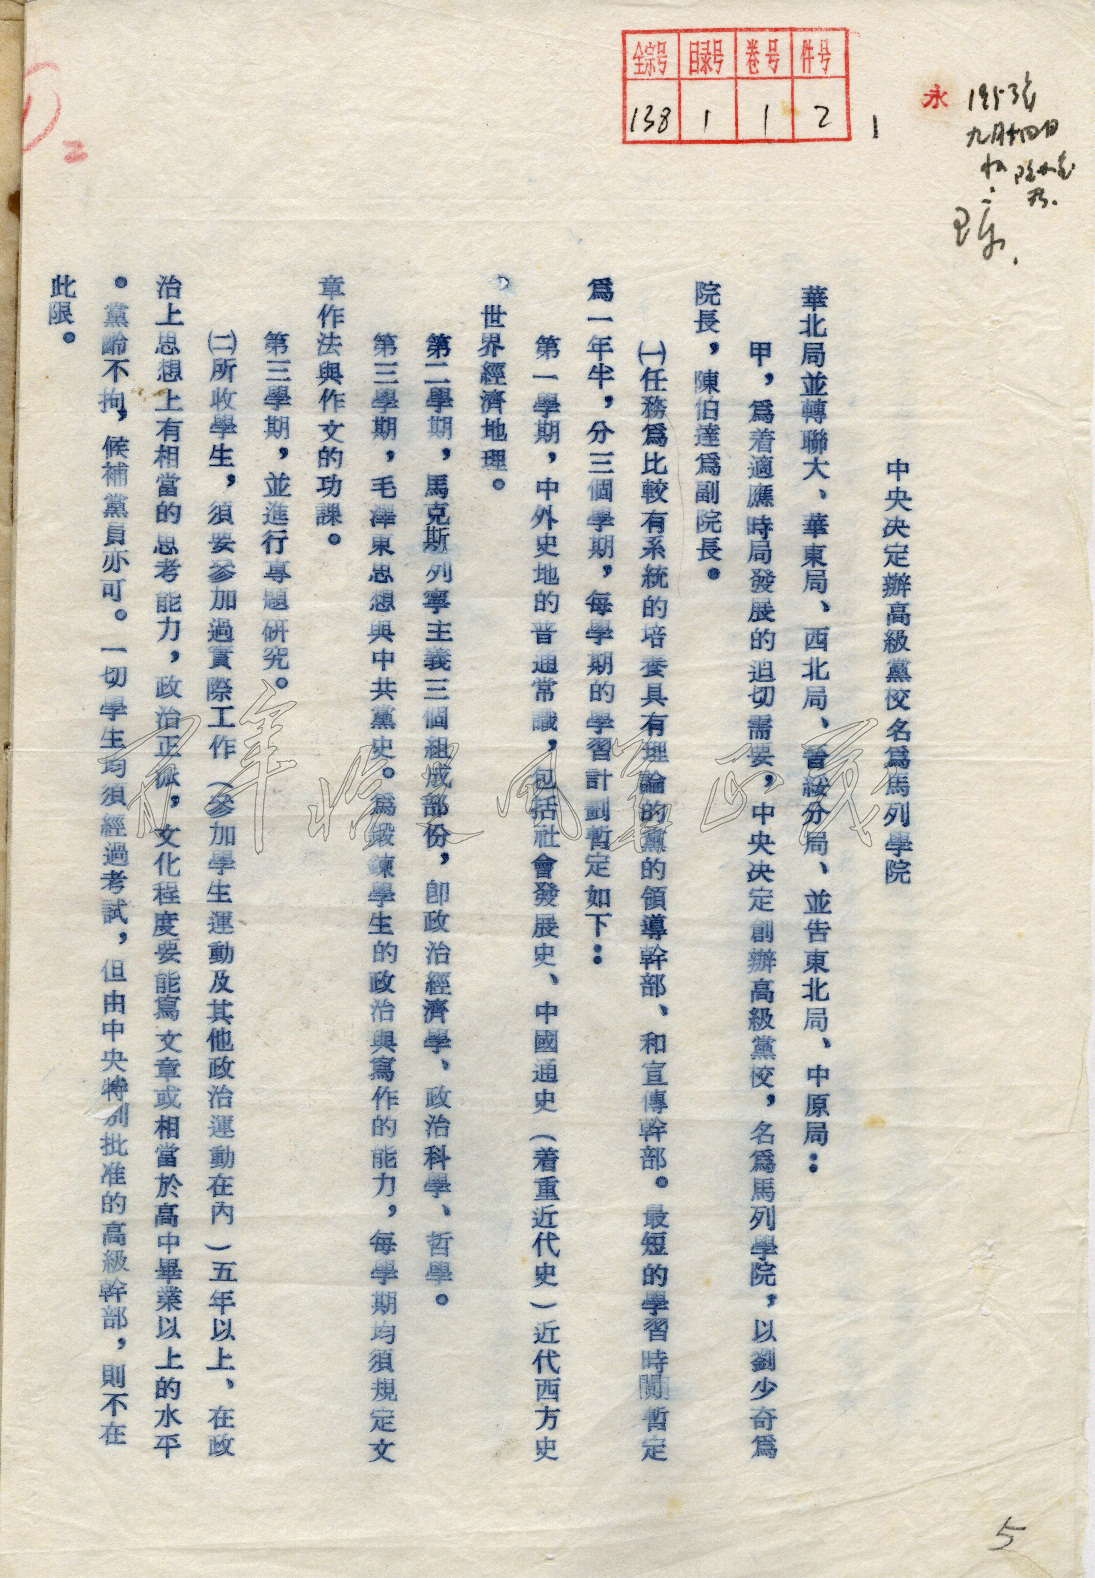 全宗号 目录号 卷号 件号
138 1 1 2
1
永
1953年
九月十四日
2
中央决定辦高級黨校名爲馬列學院
華北局並轉聯大、華東局、西北局、晉綏分局、並告東北局、中原局：
甲，爲着適應時局發展的迫切需要，中央决定創辦高級黨校，名爲馬列學院，以劉少奇爲
院長，陳伯達爲副院長。
㈠任務爲比較有系統的培養具有理論的黨的領導幹部、和宣傳幹部。最短的學習時間暫定
爲一年半，分三個學期，每學期的學習計劃暫定如下：
第一學期，中外史地的普通常識，包括社會發展史、中國通史（着重近代史）近代西方史
、世界經濟地理。
第二學期，馬克斯列寧主義三個組成部份，卽政治經濟學、政治科學、哲學。
第三學期，毛澤東思想與中共黨史。爲鍛鍊學生的政治與寫作的能力，每學期均須規定文
章作法與作文的功課。
第三學期，並進行專題研究。
㈡所收學生，須要參加過實際工作（參加學生運動及其他政治運動在內）五年以上、在政
治上思想上有相當的思考能力，政治正派，文化程度要能寫文章或相當於高中畢業以上的水平
。黨齡不拘，候補黨員亦可。一切學生均須經過考試，但由中央特別批准的高級幹部，則不在
此限。
5